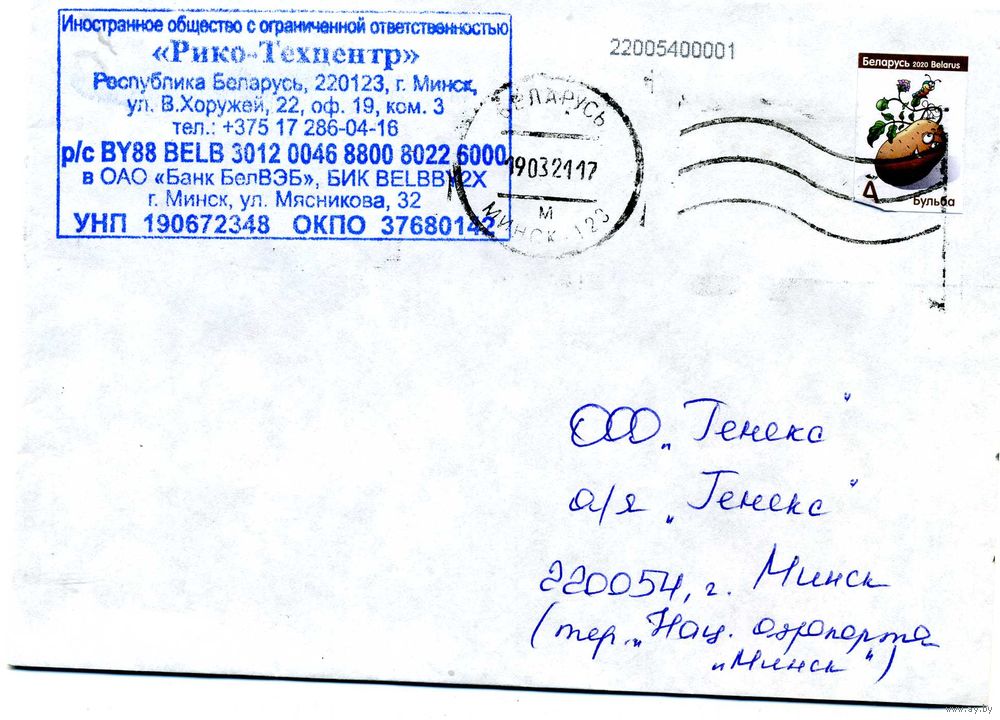 Иностранное общество с ограниченной ответственностью
«Рико-Техцентр»
Республика Беларусь, 220123, г. Минск,
ул. В.Хоружей, 22, оф. 19, ком. 3
тел.: +375 17 286-04-16
р/с BY88 BELB 3012 0046 8800 8022 6000
в ОАО «Банк БелВЭБ», БИК BELBBY2X
г. Минск, ул. Мясникова, 32
УНП 190672348 ОКПО 37680142
БЕЛАРУСЬ
19032117
М
МИНСК 123
22005400001
Беларусь 2020 Belarus
A
Бульба
ООО „Генекс"
а/я „Генекс"
220054, г. Минск
(тер. „Нац. аэропорта
„Минск")
www.ay.by